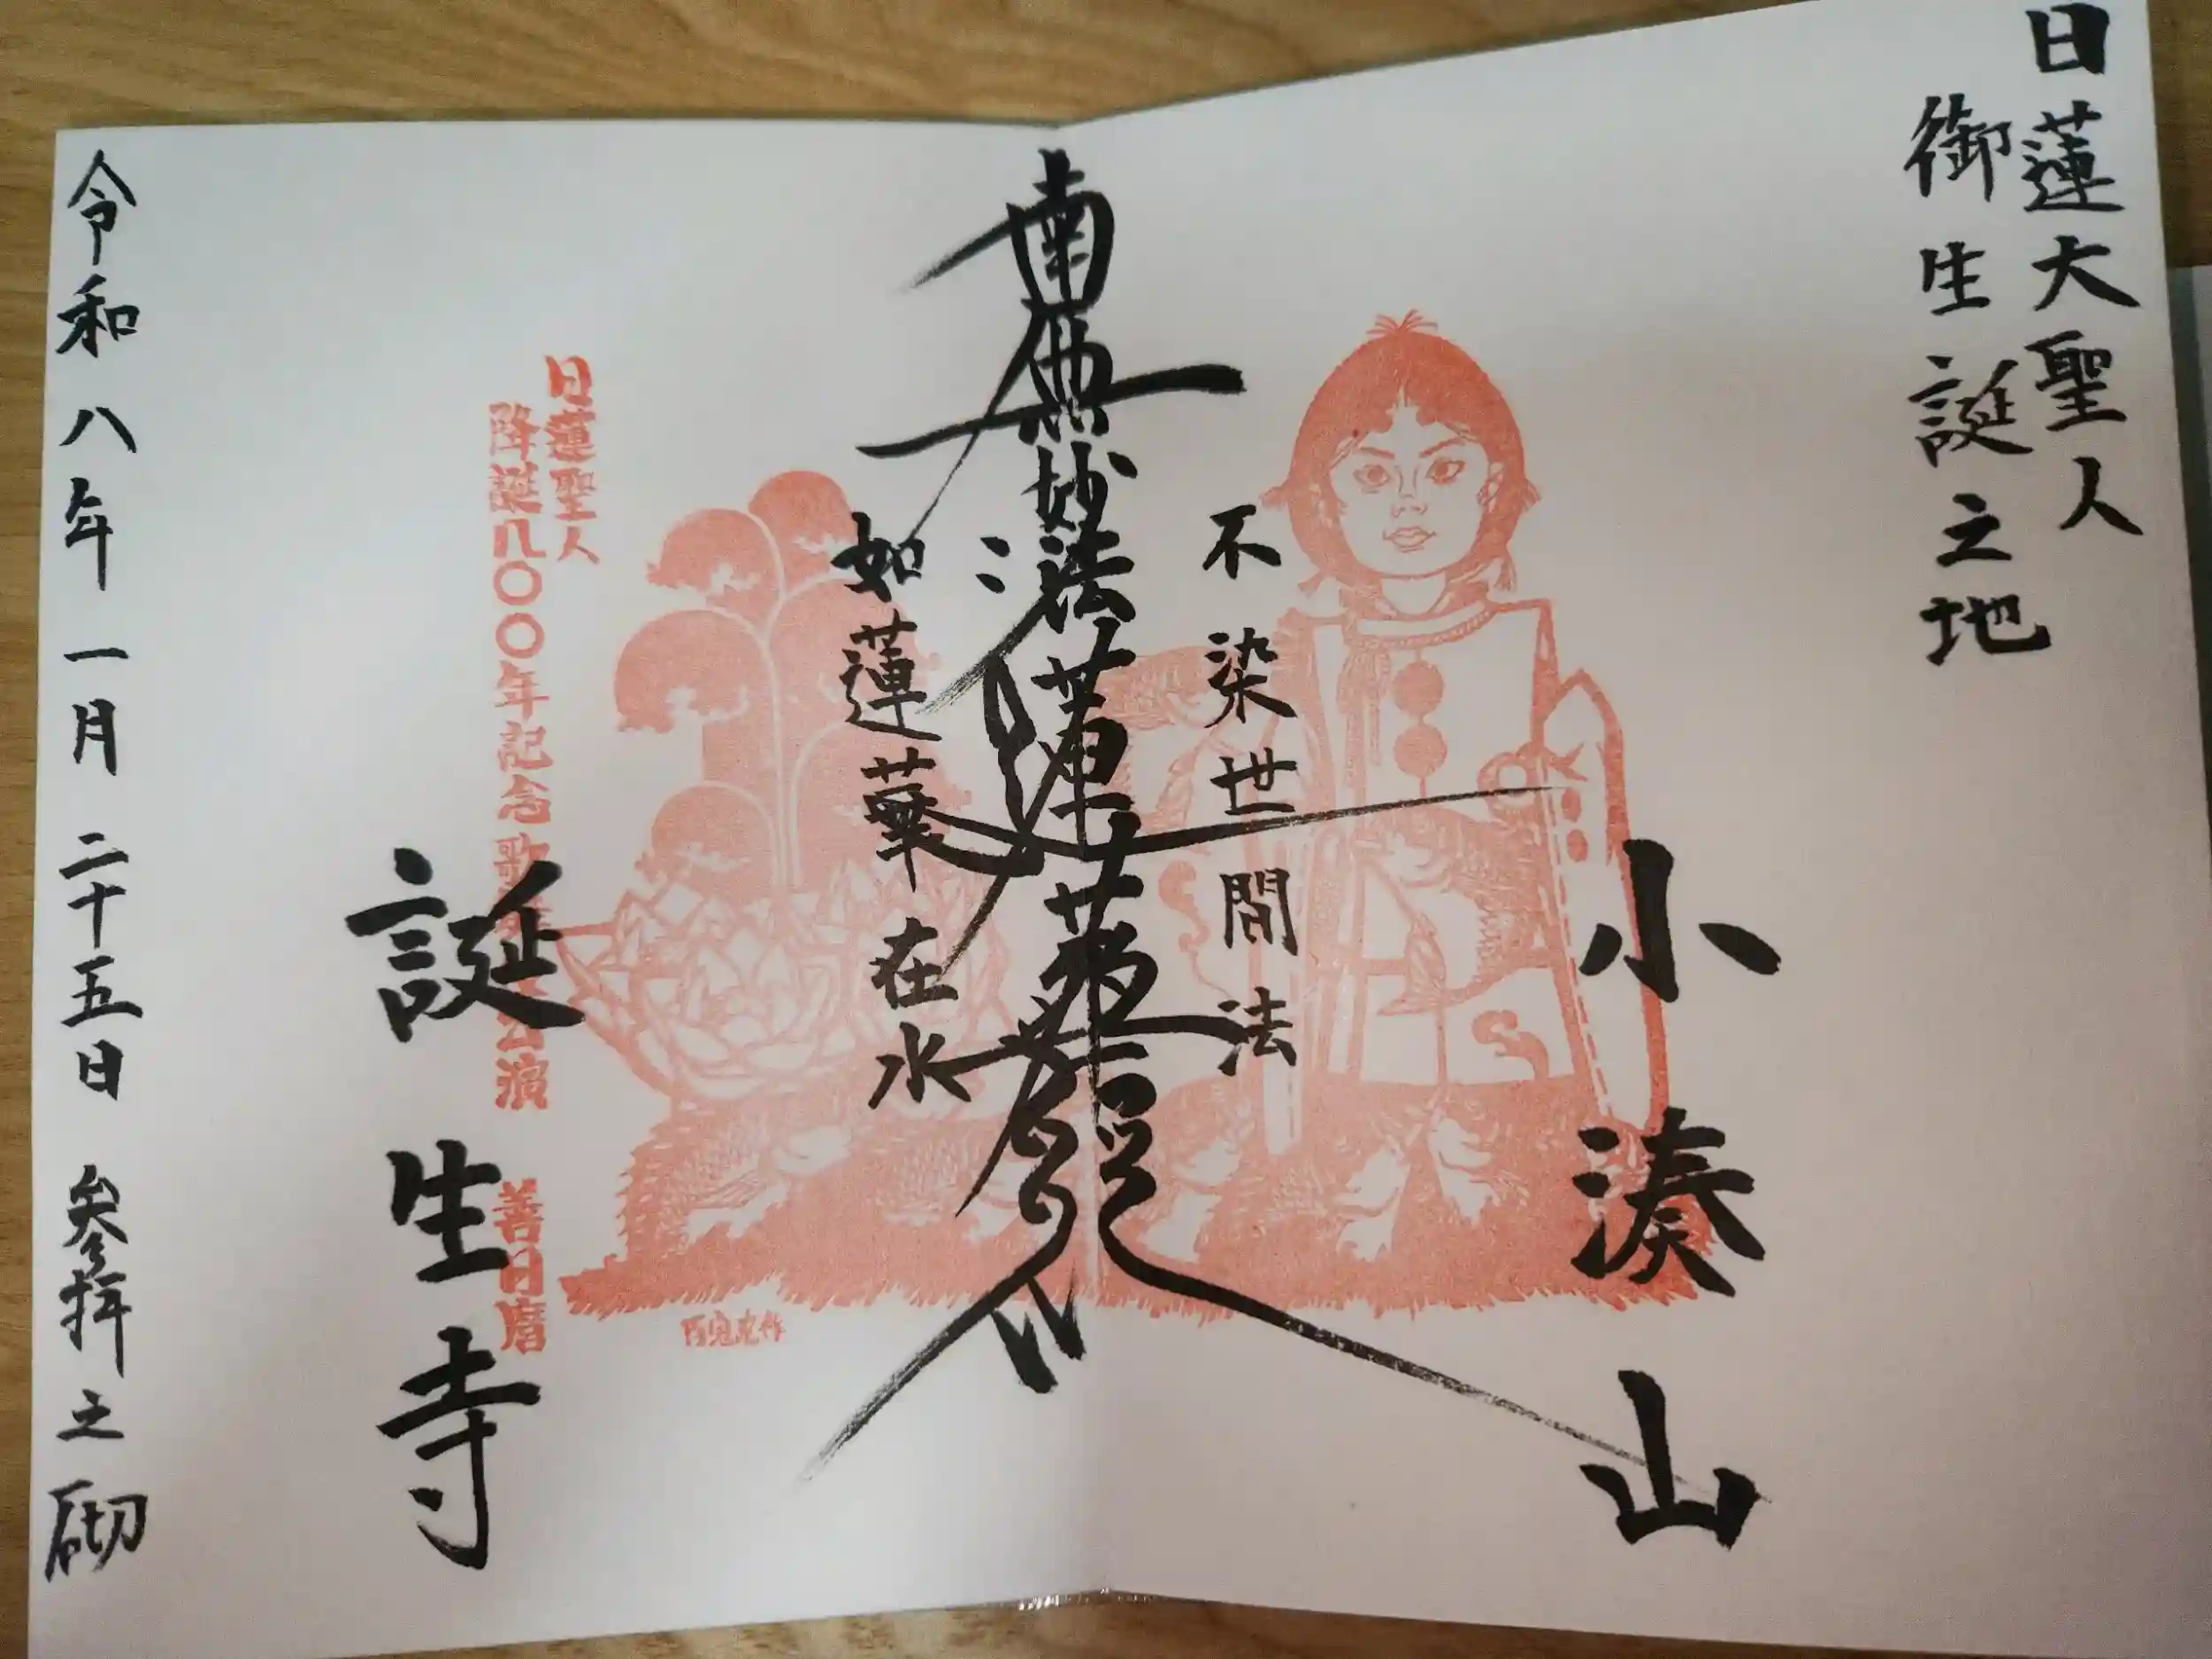 日蓮大聖人
御生誕之地
小湊山
不染世間法
南無妙法蓮華経
如蓮華在水
日蓮聖人
降誕八〇〇年記念歌舞伎公演 善日麿
誕生寺
令和八年一月二十五日 参拝之砌